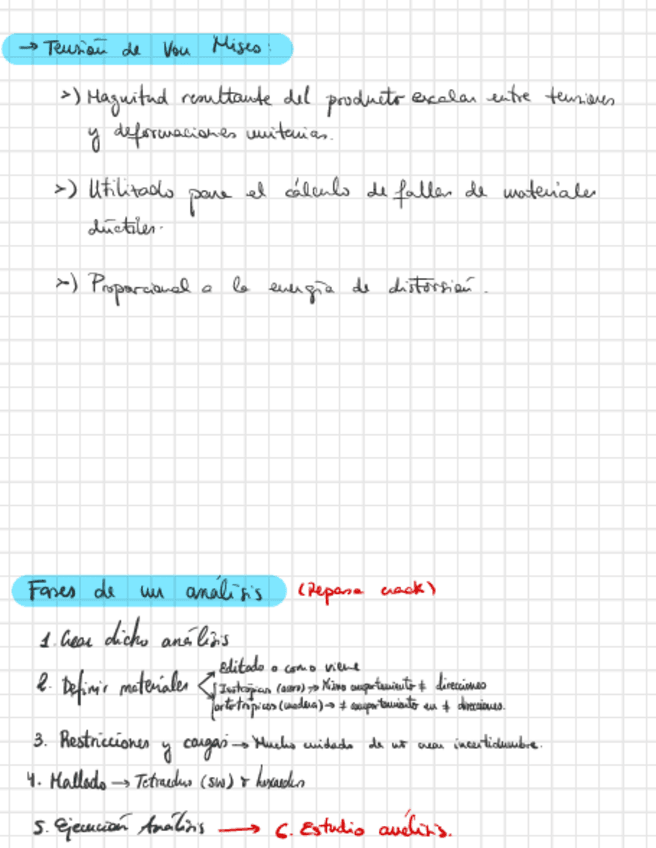 → Tensión de Von Mises:
>) Magnitud resultante del producto escalar entre tensiones
y deformaciones unitarias.
>) Utilizado para el cálculo de fallas de materiales
dúctiles.
>) Proporcional a la energía de distorsión.
Fases de un análisis (Repasa crack)
1. Crear dicho análisis
2. Definir materiales
Editado o como viene
Isotrópicos (acero) → Mismo comportamiento ≠ direcciones
ortotrópicos (madera) → ≠ comportamiento en ≠ direcciones.
3. Restricciones y cargas → Mucho cuidado de no crear incertidumbre.
4. Mallado → Tetraedros (SW) hexaedros
5. Ejecución Análisis → 6. Estudio análisis.